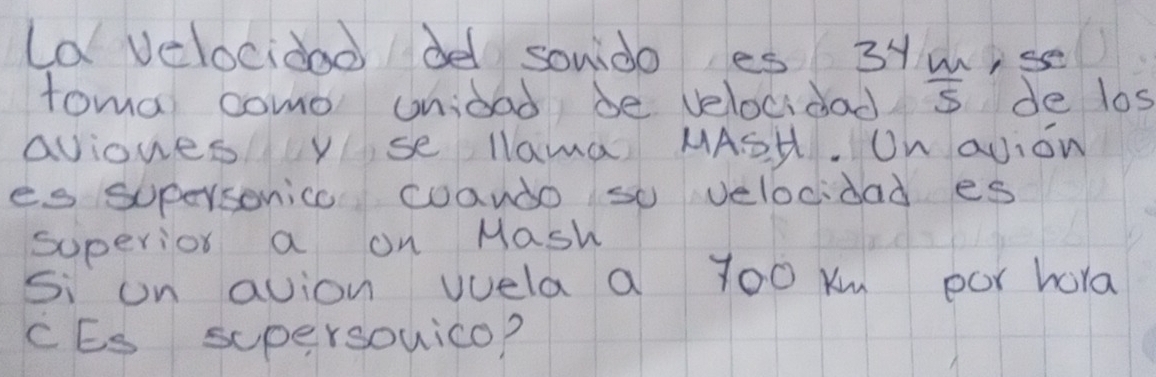 La velocidad del sonido es 34 m/s, se
toma como unidad de velocidad de los
aviones y se llama MASH. Un avión
es supersonico cuando su velocidad es
superior a un Mash
Si un avion vuela a 700 Km por hora
¿Es supersonico?